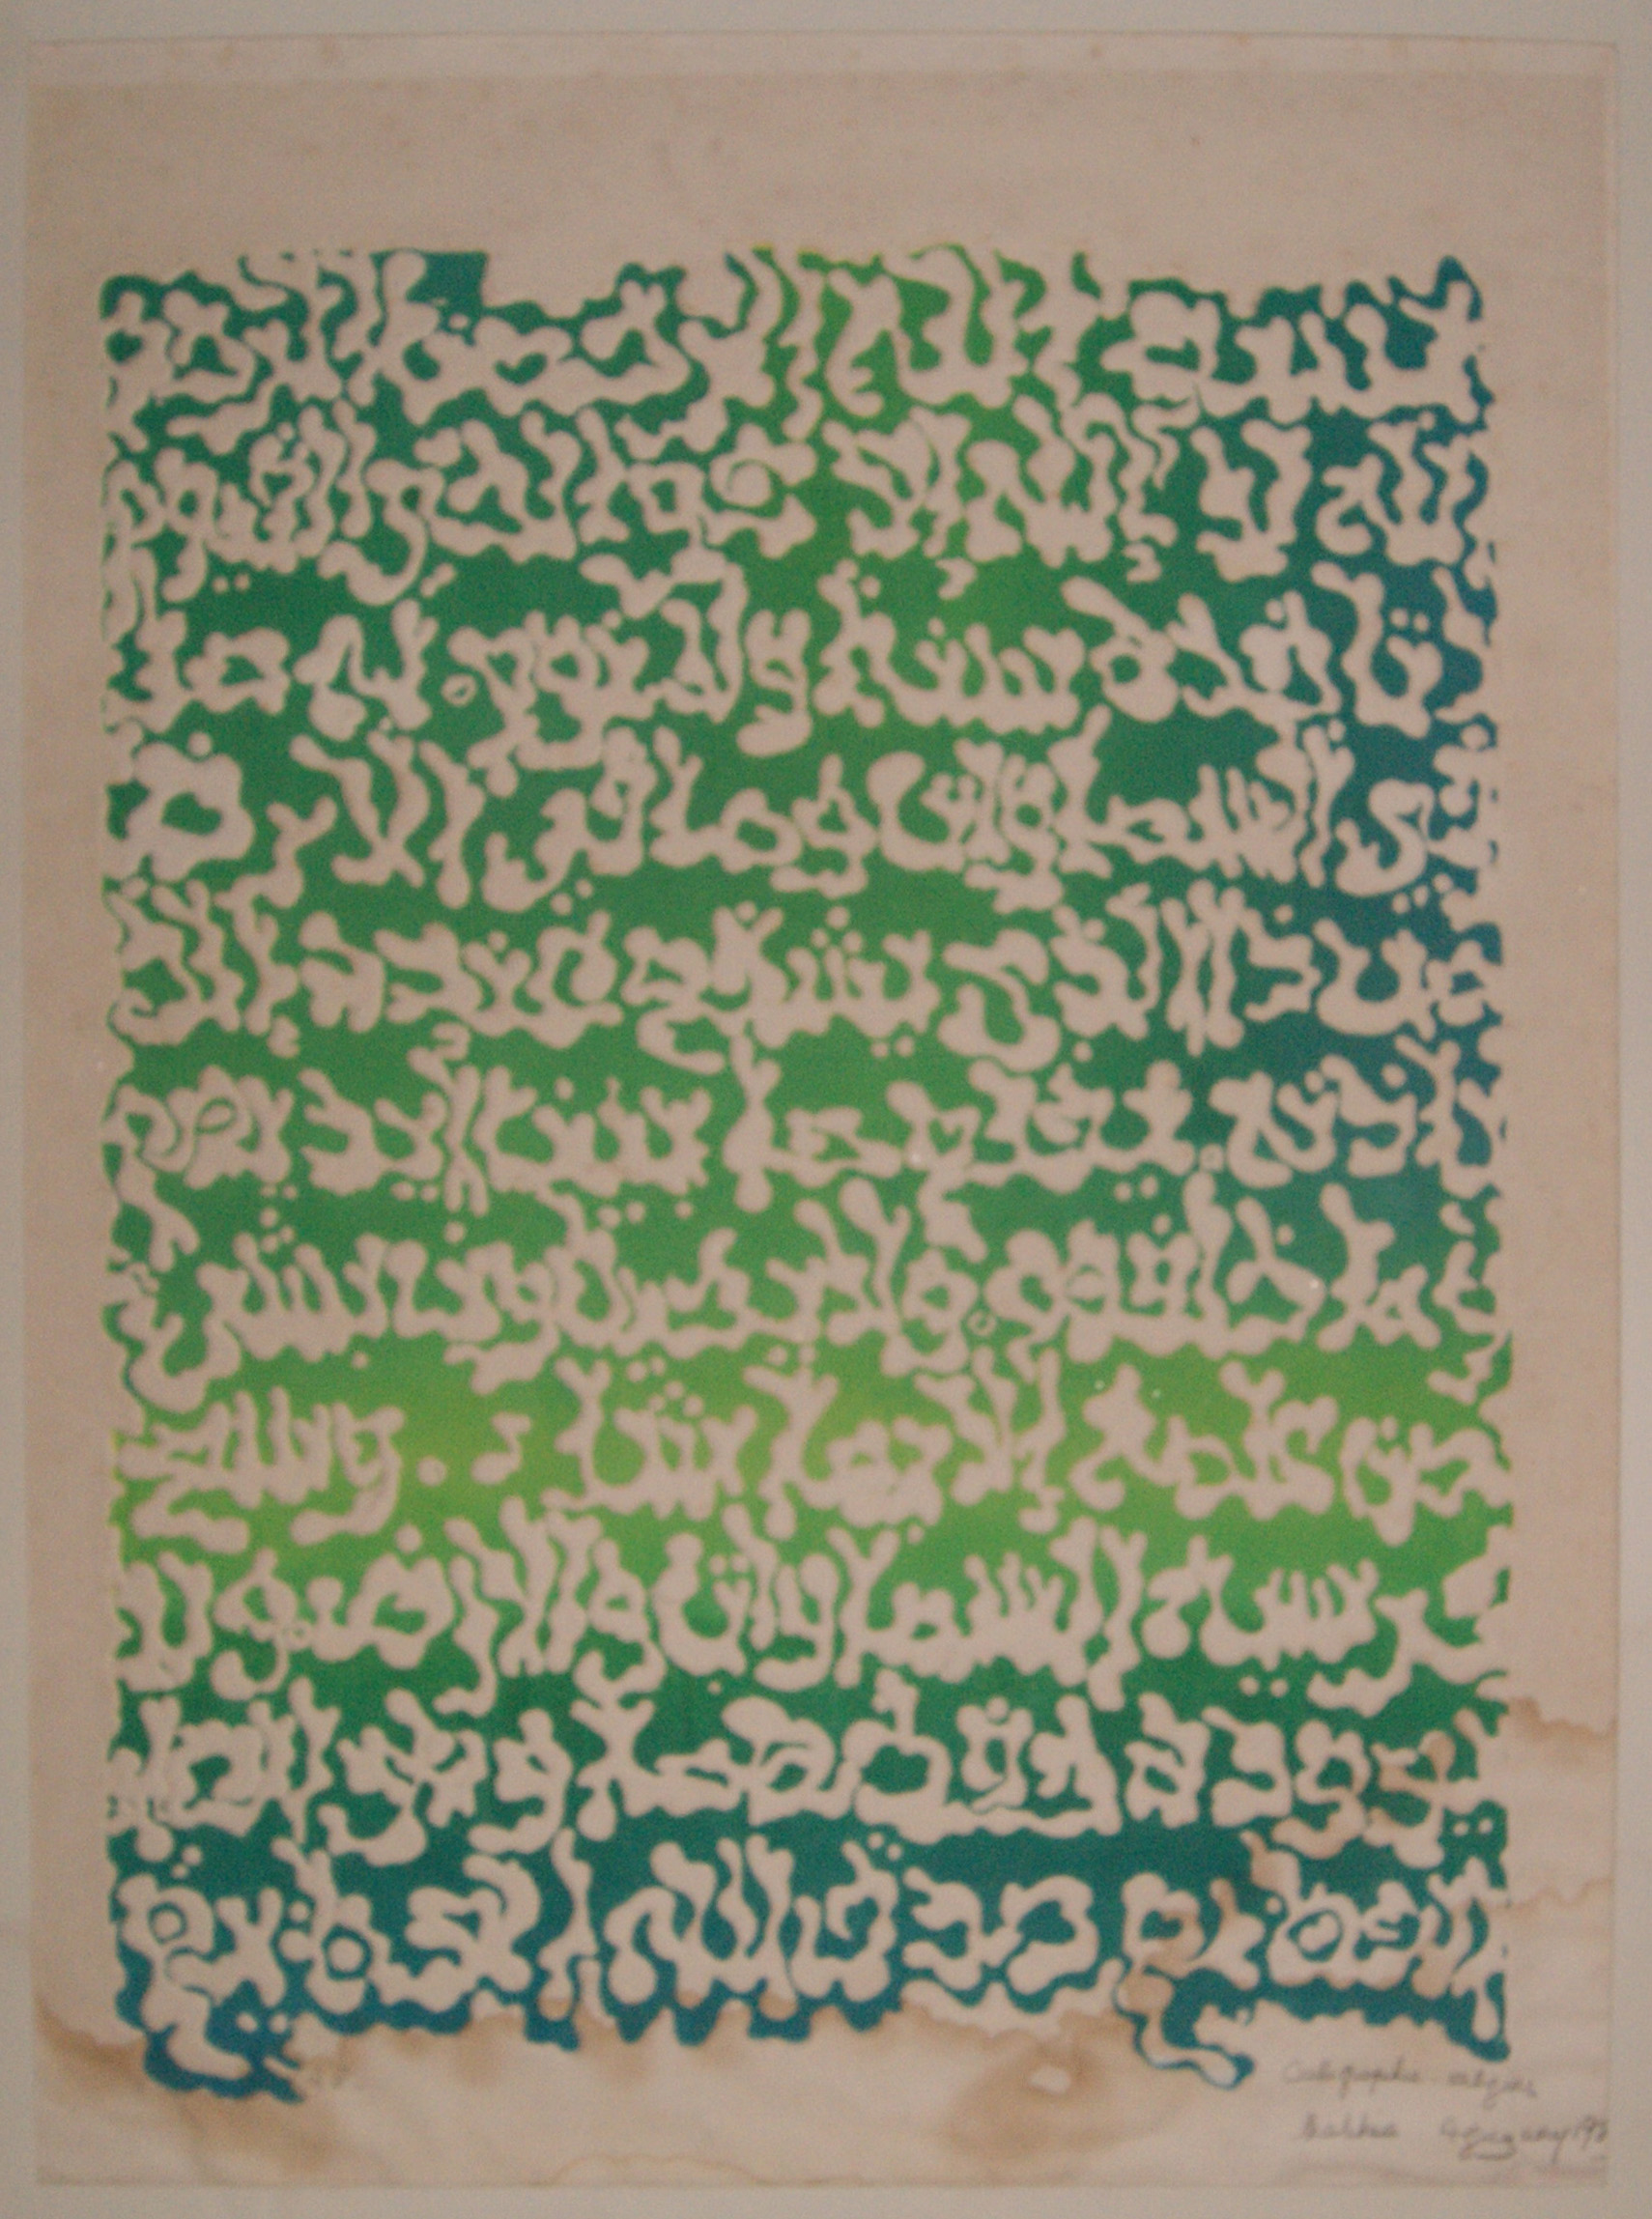 بسم الله الرحمن الرحيم
الله لا إله إلا هو الحي القيوم لا
تأخذه سنة ولا نوم له ما
في السماوات وما في الأرض
من ذا الذي يشفع عنده إلا
بإذنه يعلم ما بين أيديهم
وما خلفهم ولا يحيطون بشيء
من علمه إلا بما شاء . وسع
كرسيه السماوات والأرض ولا
يؤوده حفظهما وهو العلي
العظيم صدق الله العظيم
Caligraphie
Malika Agueznay 198